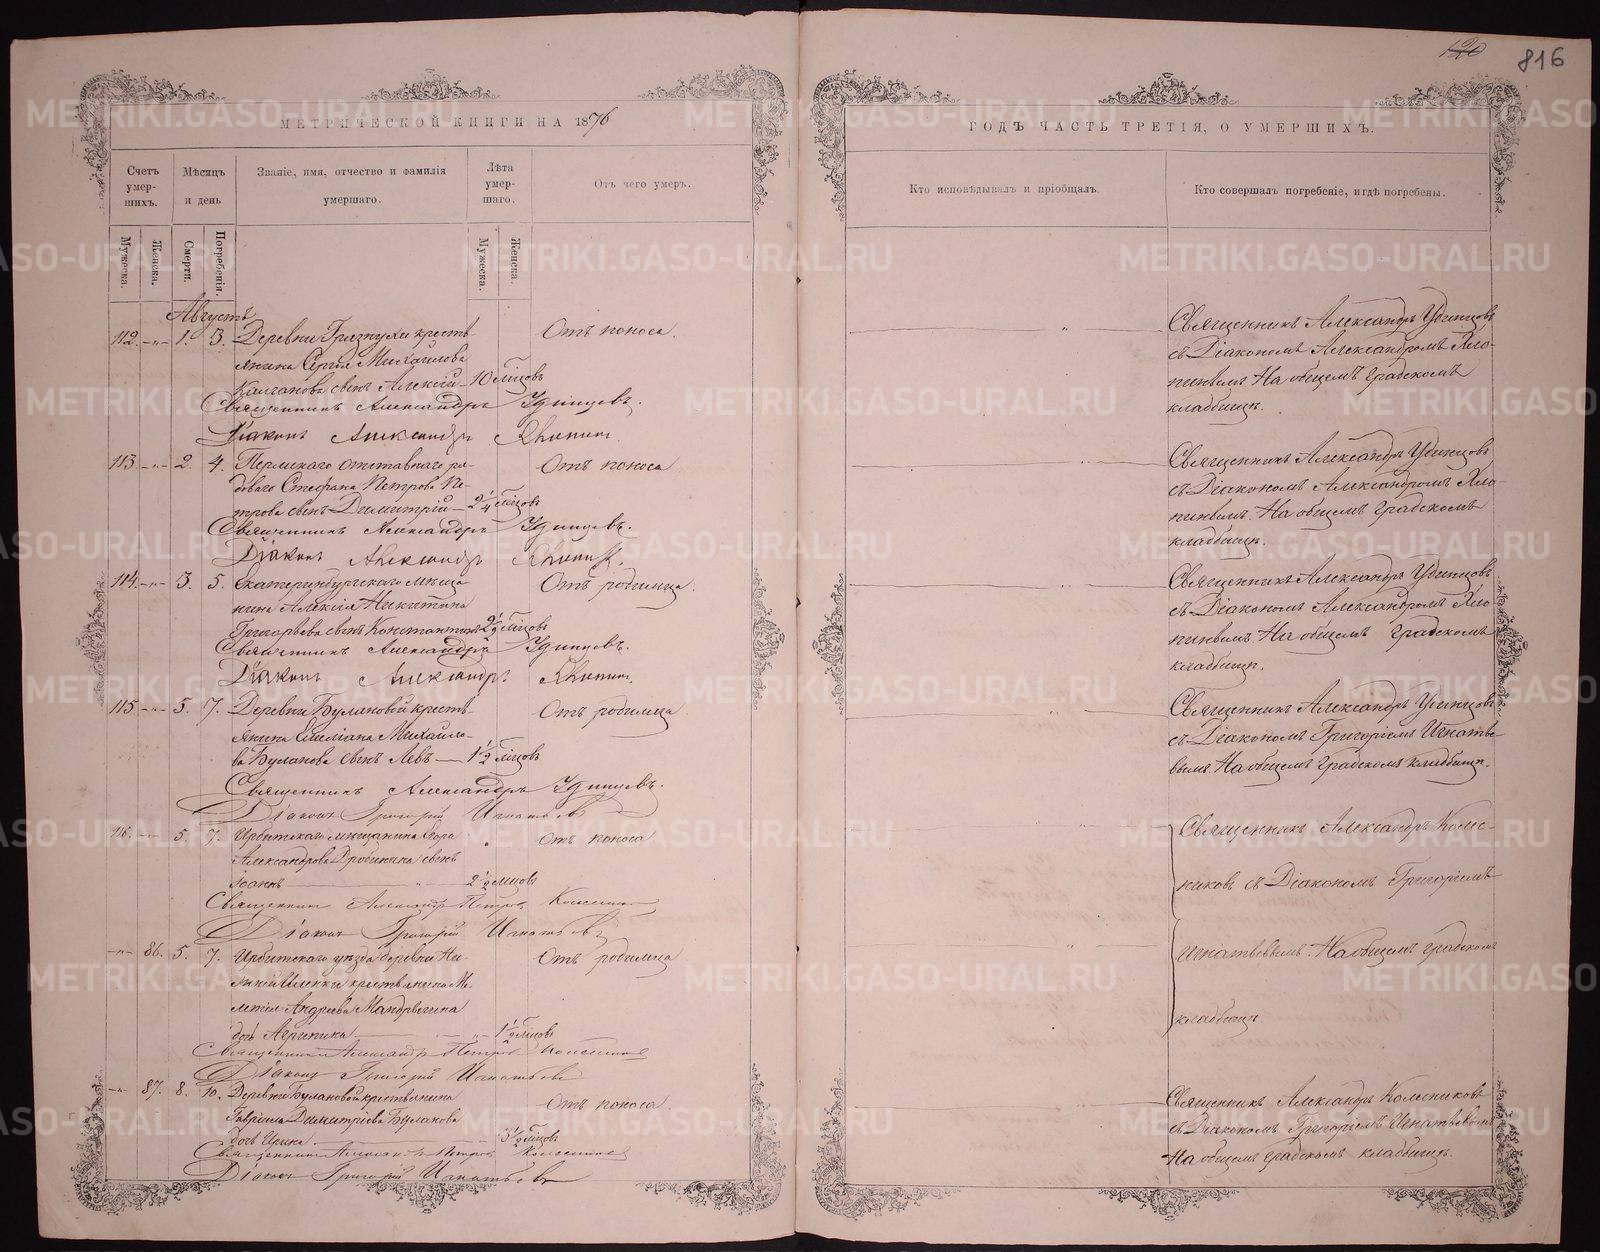 120
816
МЕТРИЧЕСКОЙ КНИГИ НА 1876
ГОДЪ ЧАСТЬ ТРЕТІЯ, О УМЕРШИХЪ.
Счетъ умер-шихъ.
Мѣсяцъ и день
Званіе, имя, отчество и фамилія умершаго.
Лѣта умер-шаго.
Отъ чего умеръ.
Кто исповѣдывалъ и пріобщалъ.
Кто совершалъ погребеніе, и гдѣ погребены.
Мужеска. Женска. Смерти. Погребенія. Мужеска. Женска.
Августъ
112. -"- 1. 3. Деревни Грязнухи кресть-
янина Сергія Михаилова
Калганова сынъ Алексій 10 мѣсцовъ
Отъ поноса.
Священникъ Александръ Удинцовъ
съ Діакономъ Александромъ
На общемъ градскомъ
кладбищѣ.
Священникъ Александръ Удинцевъ.
Діаконъ Александръ
113. -"- 2. 4. Пермскаго отставнаго ря-
доваго Стефана Петрова Пе-
трова сынъ Димитрій 2 1/4 мѣсцовъ
Отъ поноса
Священникъ Александръ Удинцовъ
съ Діакономъ Александромъ
На общемъ градскомъ
кладбищѣ.
Священникъ Александръ Удинцевъ.
Діаконъ Александръ
114. -"- 3. 5. Екатеринбургскаго мѣща-
нина Алексія Никитина
Григорьева сынъ Константинъ 2 1/2 мѣсцовъ
Отъ родимца.
Священникъ Александръ Удинцовъ
съ Діакономъ Александромъ
На общемъ градскомъ
кладбищѣ.
Священникъ Александръ Удинцевъ.
Діаконъ Александръ
115 -"- 5. 7. Деревни Булановой кресть-
янина Емеліана Михайло-
ва Буланова сынъ Левъ 1 1/2 мѣсцовъ
Отъ родимца
Священникъ Александръ Удинцовъ
съ Діакономъ Григоріемъ Игнатье-
вымъ. На общемъ градскомъ кладбищѣ.
Священникъ Александръ Удинцевъ.
Діаконъ Григорій Игнатьевъ
116. -"- 5. 7. Ирбитскаго мѣщанина Егора
Александрова сынъ
Іоаннъ 2 1/2 мѣсцовъ
Отъ поноса
Священникъ Александръ Колес-
никовъ съ Діакономъ Григоріемъ
Игнатьевымъ. На общемъ градскомъ
кладбищѣ
Священникъ Александръ Петровъ
Діаконъ Григорій Игнатьевъ
-"- 86. 5. 7. Ирбитскаго уѣзда деревни
крестьянина
Андреева
дочь Агрипина 1 1/2 мѣсцовъ
Отъ родимца
Священникъ Александръ Петровъ
Діаконъ Григорій Игнатьевъ
-"- 87. 8. 10. Деревни Булановой крестьянина
Гавріила Димитріева Буланова
дочь Ирина. 3 1/2 мѣсцовъ
Отъ поноса
Священникъ Александръ Колесниковъ
съ Діакономъ Григоріемъ Игнатьевымъ
На общемъ градскомъ кладбищѣ.
Священникъ Петровъ
Діаконъ Григорій Игнатьевъ
METRIKI.GASO-URAL.RU